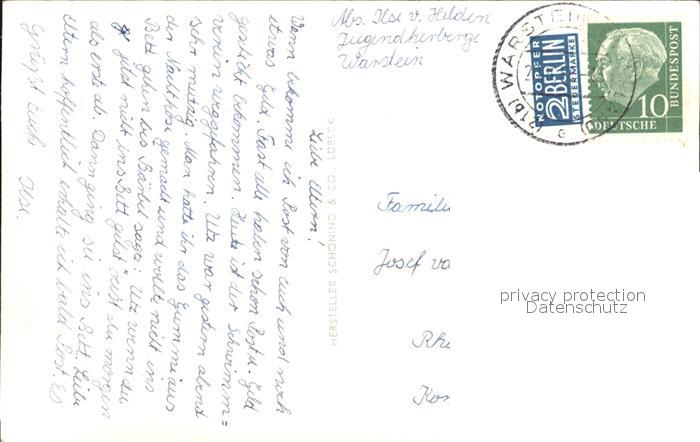 Abs. Ilse v. Helden
Jugendherberge
Warstein
(21b) WARSTEIN
NOTOPFER
2 BERLIN
STEUERMARKE
10
DEUTSCHE
BUNDESPOST
Liebe Eltern!
Wann bekomme ich Post von euch und noch
etwas Geld. Fast alle haben schon Post u. Geld
geschickt bekommen. Heute ist der Schwimm=
verein weggefahren. Utz war gestern abend
sehr mutig. Man hatte ihr das Gummi aus
der Nachthose gemacht und wollte nicht ins
Bett gehen bis Bärbel sagte: Utz wenn du
jetzt nicht ins Bett gehst reist du morgen
als erste ab. Dann ging sie ins Bett. Liebe
Eltern hoffentlich erhalte ich bald Post. Es
Grüßt Euch Ilse.
HERSTELLER SCHÖNING & CO. LÜBECK
Famili
Josef va
Rhe
Kon
privacy protection
Datenschutz